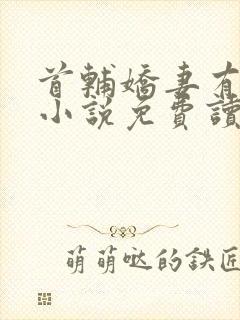 首輔嬌妻有
小說免費讀
萌萌噠的鉄匠